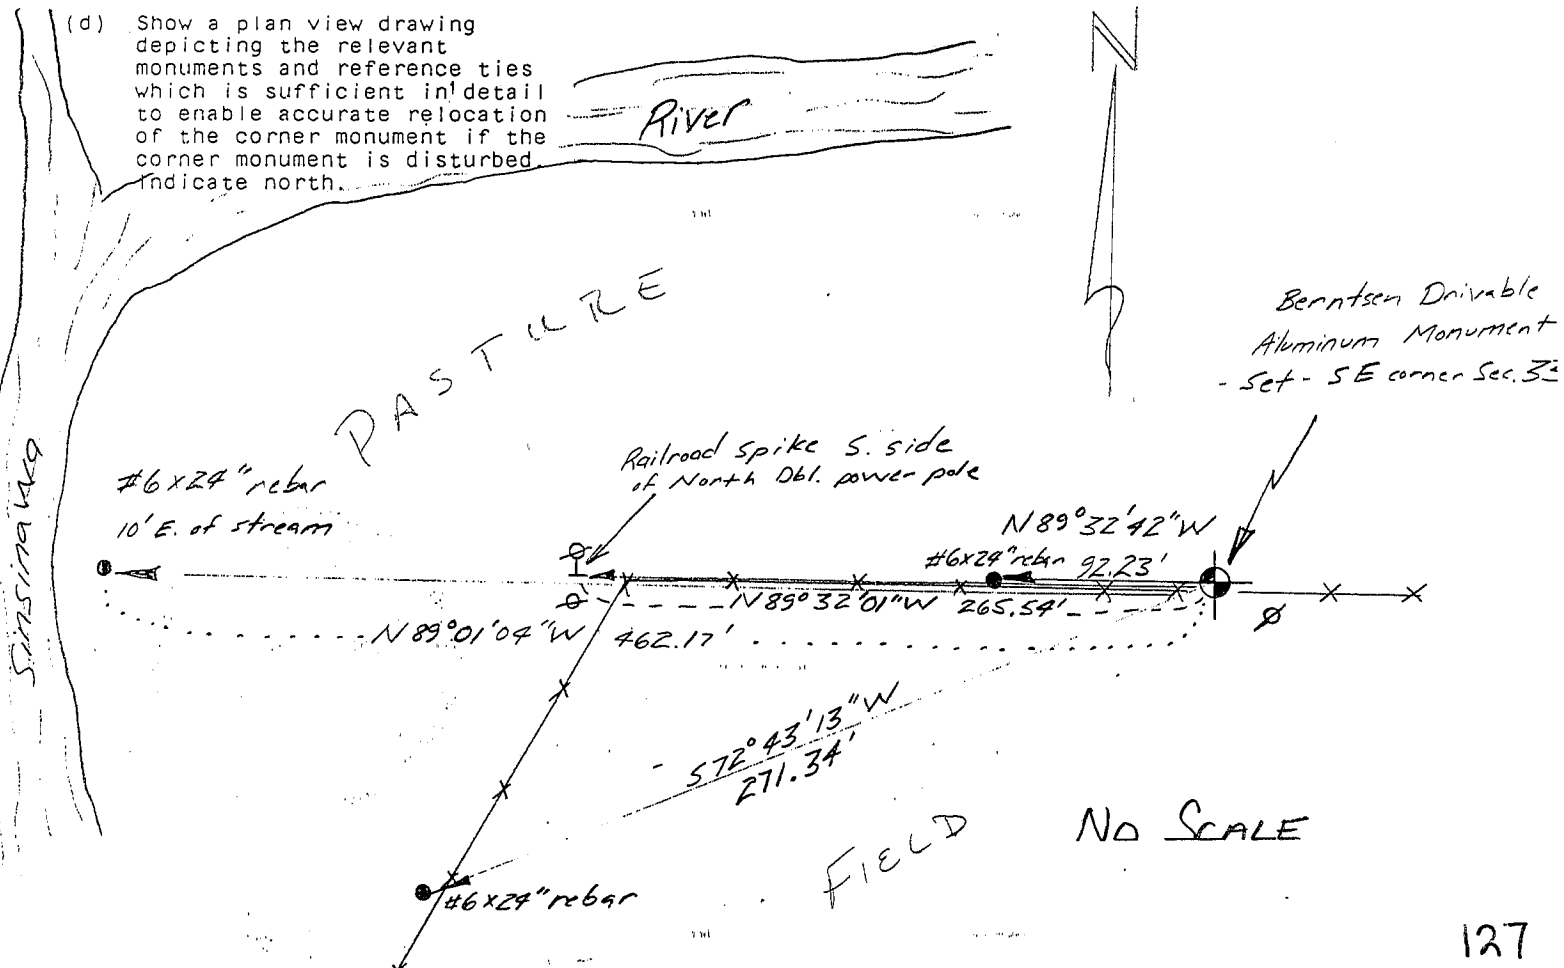 (d) Show a plan view drawing
depicting the relevant
monuments and reference ties
which is sufficient in detail
to enable accurate relocation
of the corner monument if the
corner monument is disturbed.
Indicate north.
N
River
PASTURE
Sinsinawa
Berntsen Drivable
Aluminum Monument
- Set - SE corner Sec.
#6x24" rebar
10' E. of stream
Railroad Spike S. side
of North Dbl. power pole
N89°32'42"W
#6x24" rebar 92.23'
N89°32'01"W 265.54'
N89°01'04"W 462.17'
S72°43'13"W
271.34'
#6x24" rebar
FIELD
NO SCALE
127